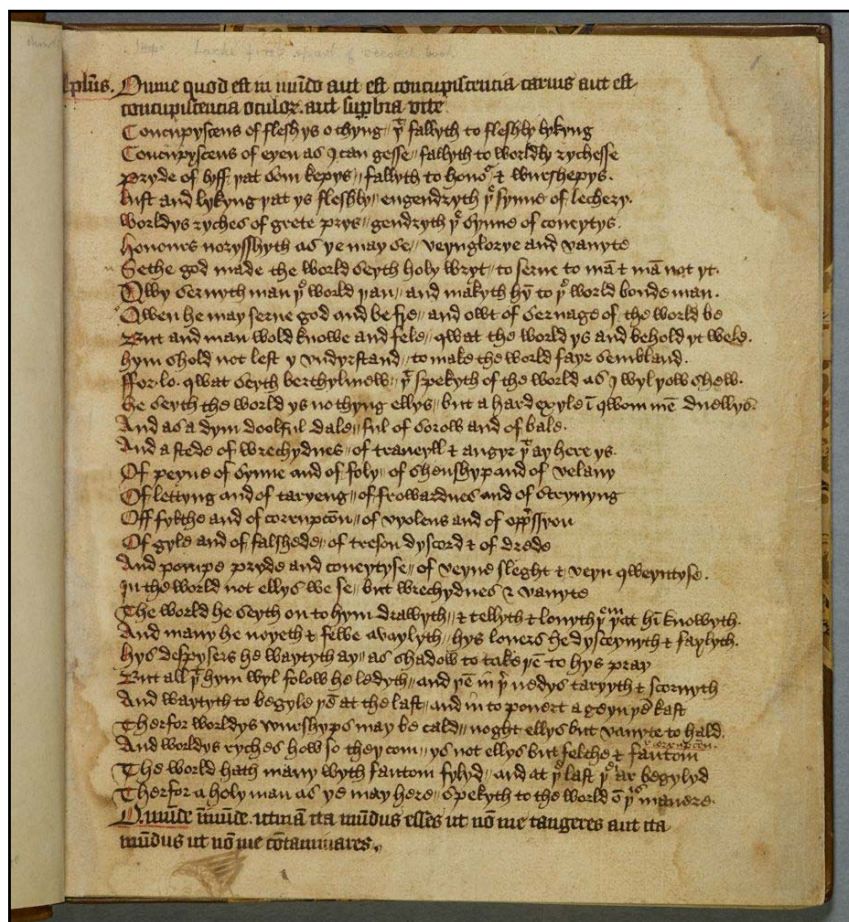 Omne quod est in mũdo aut est concupiscencia carnis aut est
concupiscencia oculoꝝ. aut supbia vite
Concupyscens of flesh ys o thyng // yͭ fallyth to fleshly lykyng
Concupyscens of eyen as I can gesse // fallyth to worldly rychesse
Pryde of lyff yat som kepys // fallyth to honoʳ & wurshepys.
Lust and lykyng yat ys fleshly // engendryth yᵉ synne of lechery.
Worldys ryches of grete prys // gendryth yᵉ synne of coueytys.
Honours norysshyth as ye may se // veynglorye and vanyte
Sethe god made the world seyth holy wryt // to serue to mã & mã not yt.
Qwy seruyth man yᵉ world yan // and makyth hỹ to yᵉ world bonde man.
Qwen he may serue god and be fre // and owt of seruage of the world be
But and man wold knowe and fele // qwat the world ys and behold yt wele.
hym shold not lest y vndyrstand // to make the world fayr sembland.
ffor lo. qwat seyth berthylmew // yͭ spekyth of the world as I wyl yow shew.
he seyth the world ys no thyng ellys // but a hard exyle ĩ qwom mẽ duellys.
And as a dym doolful dale // ful of sorow and of bale.
And a stede of wrechydnes // of traueyll & angyr yͭ ay here ys.
Of peyne of synne and of foly // of shenshyp and of velany
Of lettyng and of taryeng // of frowardnes and of stryuyng
Off fylthe and of corrupcõn // of vyolens and of opp̃ssyon
Of gyle and of falshede // of treson dyscord & of drede
And pompe pryde and coueytyse // of veyne sleght & veyn qweyntyse.
In the world not ellys we se // but wrechydnes & vanyte
The world he seyth on to hym drawyth // & tellyth & louyth yᵉᵐ yͭat hĩ knowyth.
And many he noyeth & fewe avaylyth // hys louers he dysceyuyth & faylyth.
hys despysers he waytyth ay // as shadow to take yẽ to hys pray
But all yͭ hym wyl folow he ledyth // and yẽ in yʳ nedys taryyth & scornyth
And waytyth to begyle yẽ at the last // and in to pouert a geyn yẽ kast
Therfor worldys wurshyps may be cald // noght ellys but vanyte to hald.
And worldys ryches how so they com // ys not ellys but felthe & fantom
The world hath many wyth fantom fylyd // and at yᵉ last yᵉ ar begylyd
Therfor a holy man as ye may here // spekyth to the world õ yˢ manere.
O. mũde ĩmũde. utinã ita mũdus esses ut nõ me tangeres aut ita
mũdus ut nõ me cõtaminares.